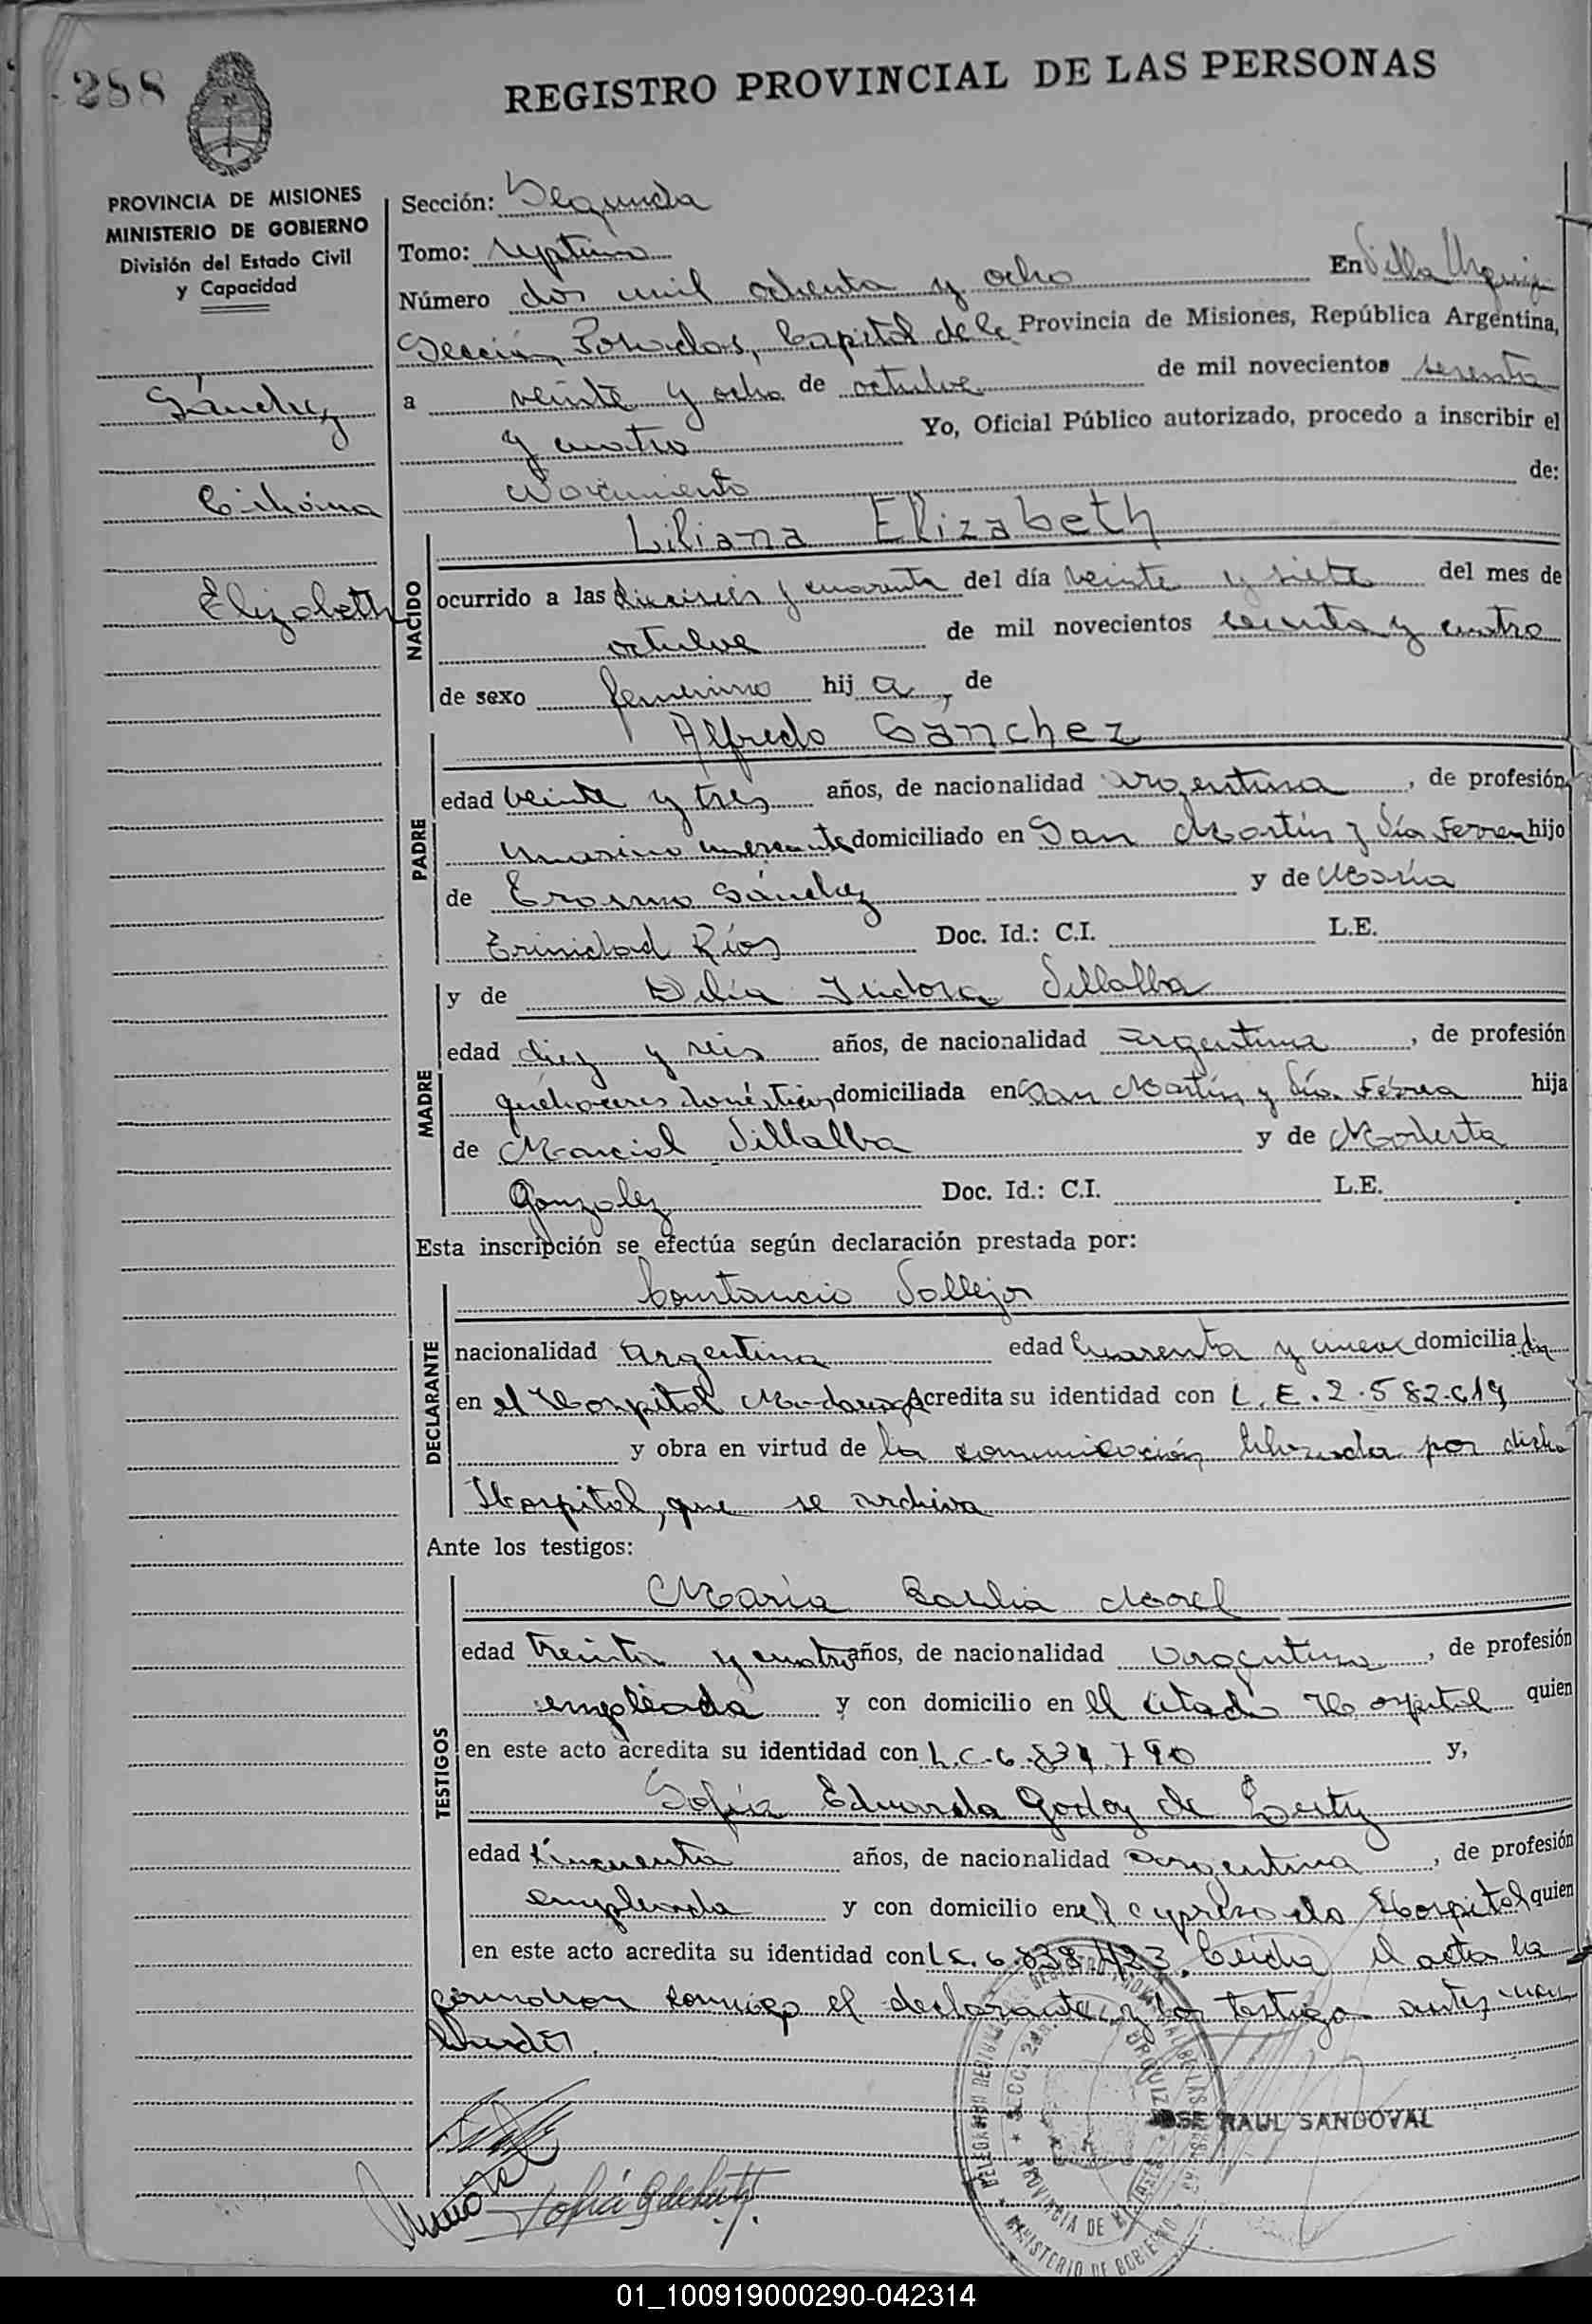 288
REGISTRO PROVINCIAL DE LAS PERSONAS
PROVINCIA DE MISIONES
MINISTERIO DE GOBIERNO
División del Estado Civil
y Capacidad
Sánchez
Elizabeth
Sección: Segunda
Tomo: septimo
Número dos mil ochenta y ocho En Villa Urquiza
Sección, Posadas, Capital de la Provincia de Misiones, República Argentina,
a veinte y ocho de octubre de mil novecientos sesenta
y cuatro Yo, Oficial Público autorizado, procedo a inscribir el
Nacimiento de:
NACIDO
Liliana Elizabeth
ocurrido a las dieciseis y cuarenta del día veinte y siete del mes de
octubre de mil novecientos sesenta y cuatro
de sexo femenino hij a, de
PADRE
Alfredo Sánchez
edad veinte y tres años, de nacionalidad argentina, de profesión
marino mercante domiciliado en San Martín y Vía Ferrea hijo
de Erasmo Sánchez y de María
Trinidad Ríos Doc. Id.: C.I. L.E.
MADRE
y de Delia Isidora Villalba
edad diez y seis años, de nacionalidad argentina, de profesión
quehaceres domésticos domiciliada en San Martín y Vía Férrea hija
de Marcial Villalba y de Modesta
Gonzalez Doc. Id.: C.I. L.E.
Esta inscripción se efectúa según declaración prestada por:
DECLARANTE
Constancio Vallejos
nacionalidad argentina edad cuarenta y nueve domicilia do
en el Hospital Madariaga Acredita su identidad con L.E. 2.582.619
y obra en virtud de la comunicación librada por dicho
Hospital, que se archiva
Ante los testigos:
TESTIGOS
María Morel
edad treinta y cuatro años, de nacionalidad argentina, de profesión
empleada y con domicilio en el citado Hospital quien
en este acto acredita su identidad con L.C. 6.834.790 y,
Sofía Eduarda Godoy de
edad cincuenta años, de nacionalidad argentina, de profesión
empleada y con domicilio en el expresado Hospital quien
en este acto acredita su identidad con L.C. 6.838.423. Leída el acta la
firmaron conmigo el declarante y los testigos antes nom
brados.
JOSE RAUL SANDOVAL
PROVINCIA DE MISIONES
MINISTERIO DE GOBIERNO
01_100919000290-042314